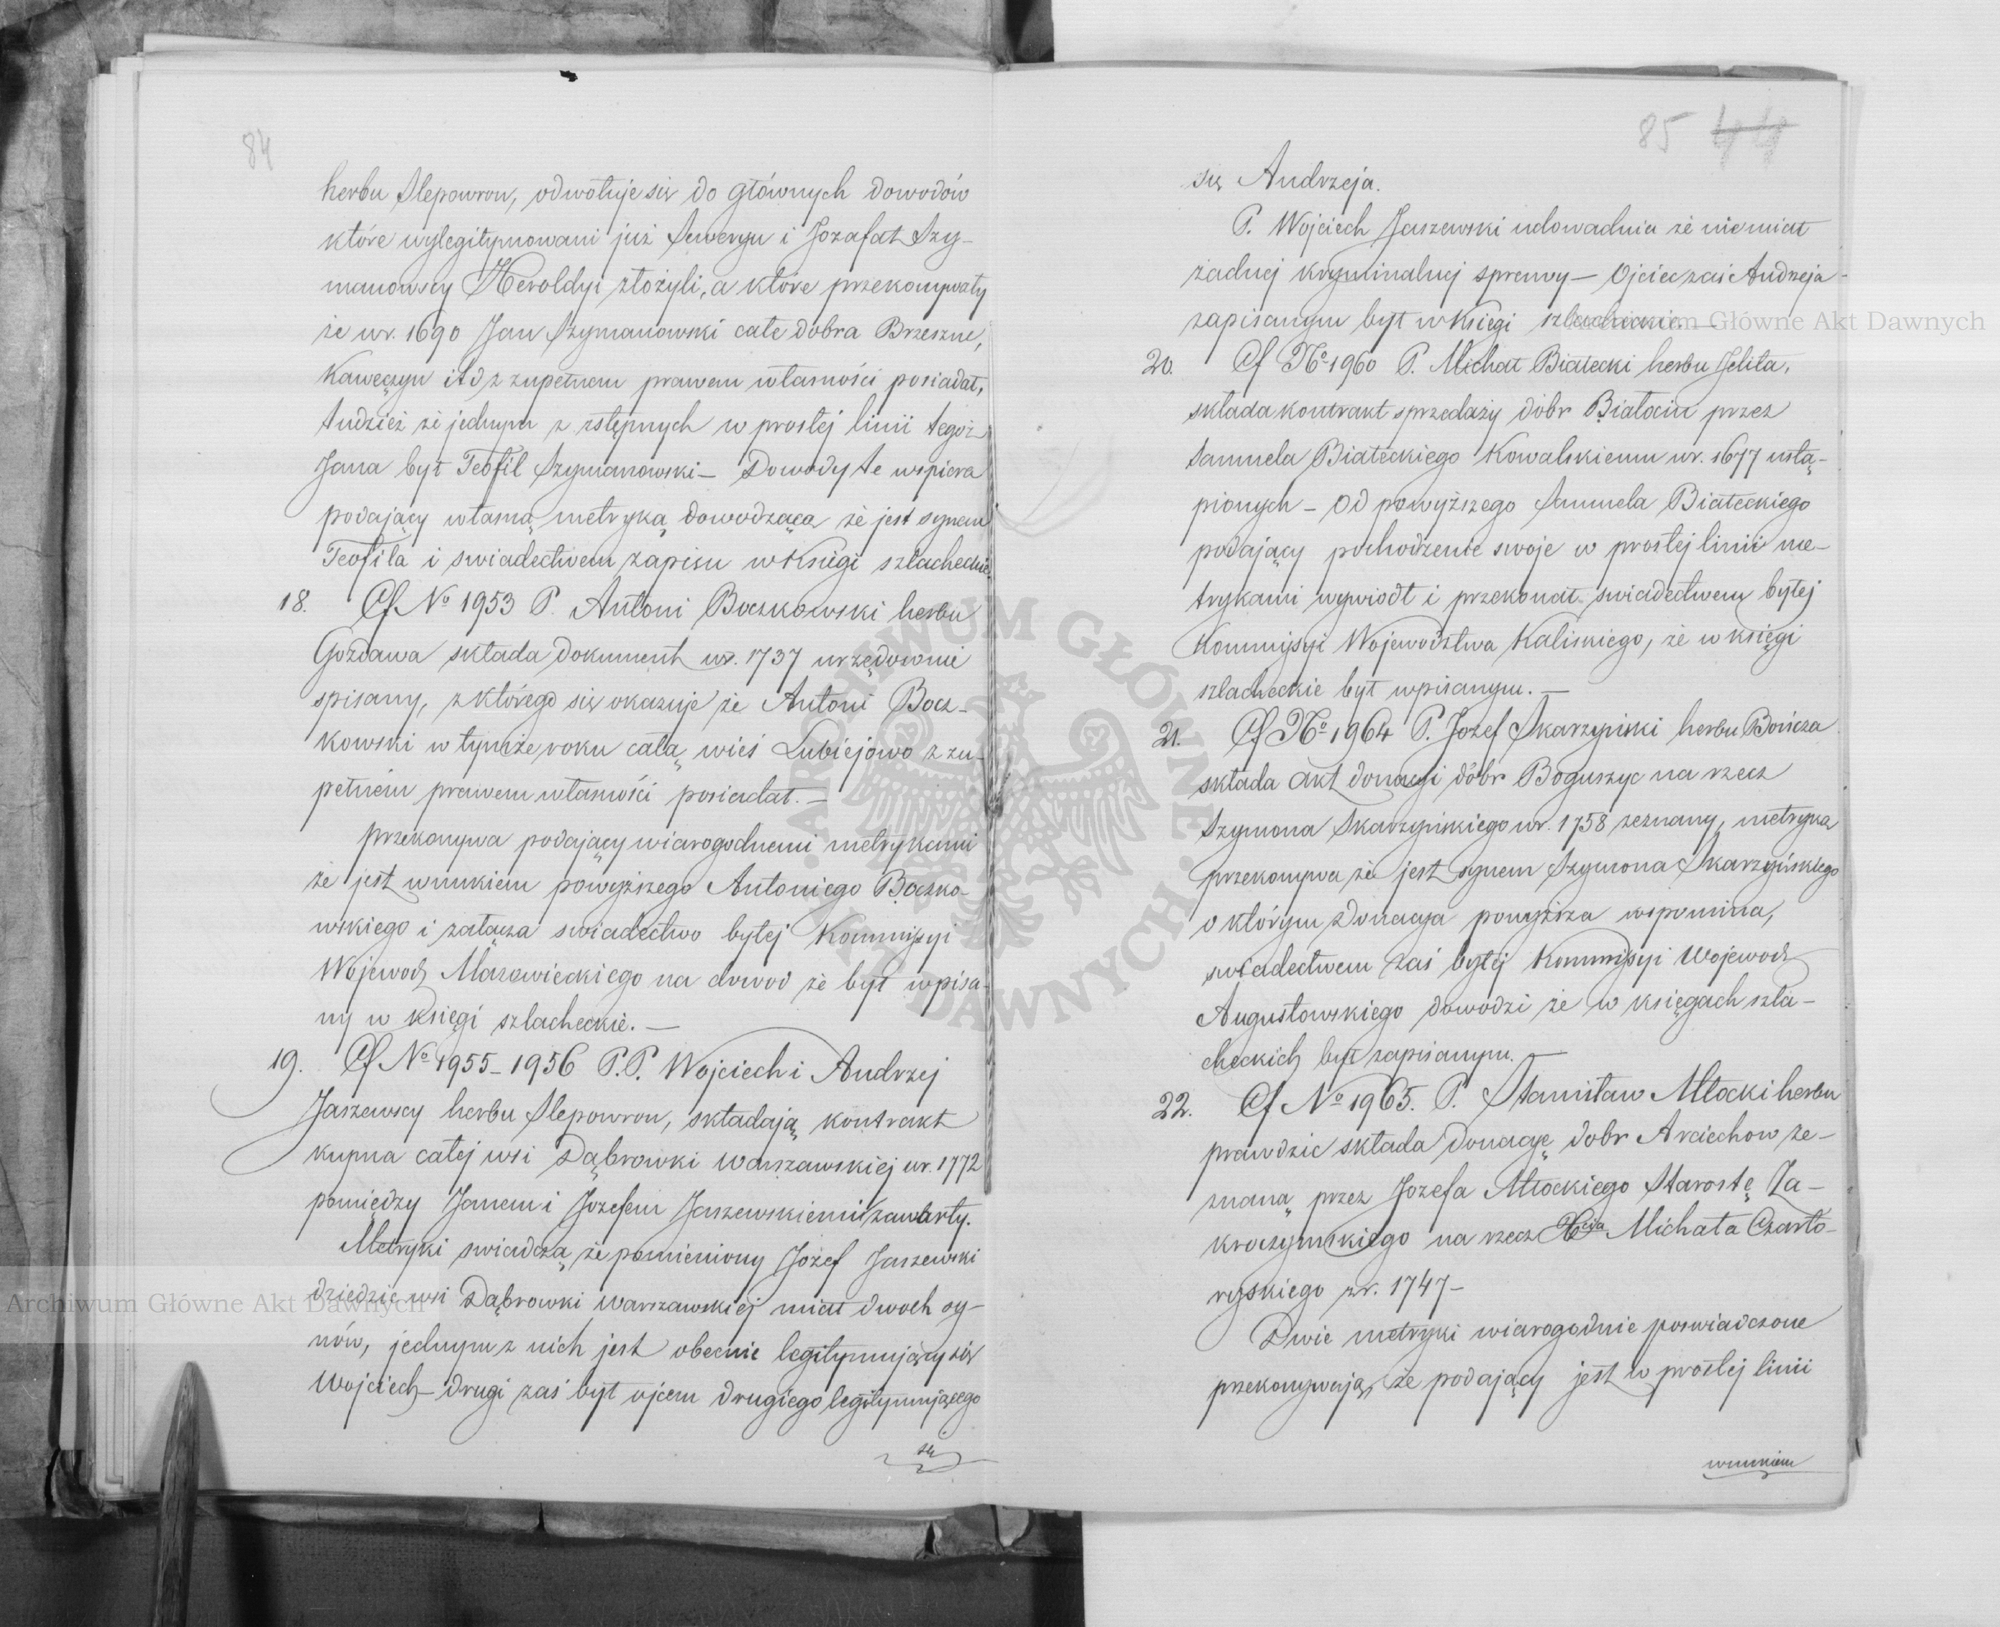 84
herbu Slepowron, odwołuje się do głównych dowodów
które wylegitymowani już Seweryn i Jozafat Szy-
manowscy Heroldyi złożyli, a które przekonywały
że w r. 1690 Jan Szymanowski całe dobra Brzeszne,
Kawęczyn itd z zupełnem prawem własności posiadał,
tudzież że jednym z zstępnych w prostej linii tegoż
Jana był Teofil Szymanowski – Dowody te wspiera
podający własną metryką dowodzącą że jest synem
Teofila i swiadectwem zapisu w Księgi szlacheckie.
18. Cf No 1953 P. Antoni Boczkowski herbu
Gozdawa składa dokument w r. 1737 urzędownie
spisany, z którego się okazuje że Antoni Bocz-
kowski w tymże roku całą wieś Lubiejowo z zu-
pełném prawem własności posiadał. –
przekonywa podający wiarogodnemi metrykami
że jest wnukiem powyższego Antoniego Boczko-
wskiego i załącza swiadectwo byłej Kommissyi
Wojewodz Mazowieckiego na dowod że był wpisa-
ny w księgi szlacheckie. –
19. Cf No 1955 – 1956 P.P. Wojciech i Andrzej
Jaszewscy herbu Slepowron, składają kontrakt
kupna całej wsi Dąbrowki Warszawskiej w r. 1772
pomiędzy Janem i Jozefem Jaszewskiemi zawarty.
Metryki swiadczą że pomieniony Józef Jaszewski
dziedzic wsi Dąbrowki Warszawskiej miał dwoch sy-
nów, jednym z nich jest obecnie legitymujący się
Wojciech drugi zaś był ojcem drugiego legitymującego
się
85 44
się Andrzeja.
P. Wojciech Jaszewski udowadnia że nie miał
żadnej kryminalnej sprawy – Ojciec zaś Andrzeja
zapisanym był w Księgi szlacheckie. –
20. Cf No 1960 P. Michał Białecki herbu Jelita,
składa kontrakt sprzedaży dóbr Białocin przez
Samuela Białeckiego Kowalskiemu w r. 1677 ustą-
pionych – Od powyższego Samuela Białeckiego
podający pochodzenie swoje w prostej linii me-
trykami wywiodł i przekonał swiadectwem byłej
Kommissyi Wojewodztwa Kaliskiego, że w księgi
szlacheckie był wpisanym. –
21. Cf No 1964 P. Jozef Skarzyński herbu Bończa
składa Akt donacyi dóbr Boguszyc na rzecz
Szymona Skarzyńskiego w r. 1758 zeznany, metryka
przekonywa że jest synem Szymona Skarzyńskiego
o którym Donacya powyższa wspomina,
swiadectwem zaś byłej Kommissyi Wojewodz
Augustowskiego dowodzi że w księgach szla-
checkich był zapisanym. –
22. Cf No 1965. P. Stanisław Młocki herbu
prawdzic składa Donacyę dobr Arciechow ze-
znaną przez Jozefa Młockiego Starostę Za-
kroczymskiego na rzecz Xcia Michała Czarto-
ryskiego z r. 1747 –
Dwie metryki wiarogodnie poswiadczone
przekonywają, że podający jest w prostej linii
wnukiem
Archiwum Główne Akt Dawnych
Archiwum Główne Akt Dawnych
ARCHIWUM GŁÓWNE AKT DAWNYCH